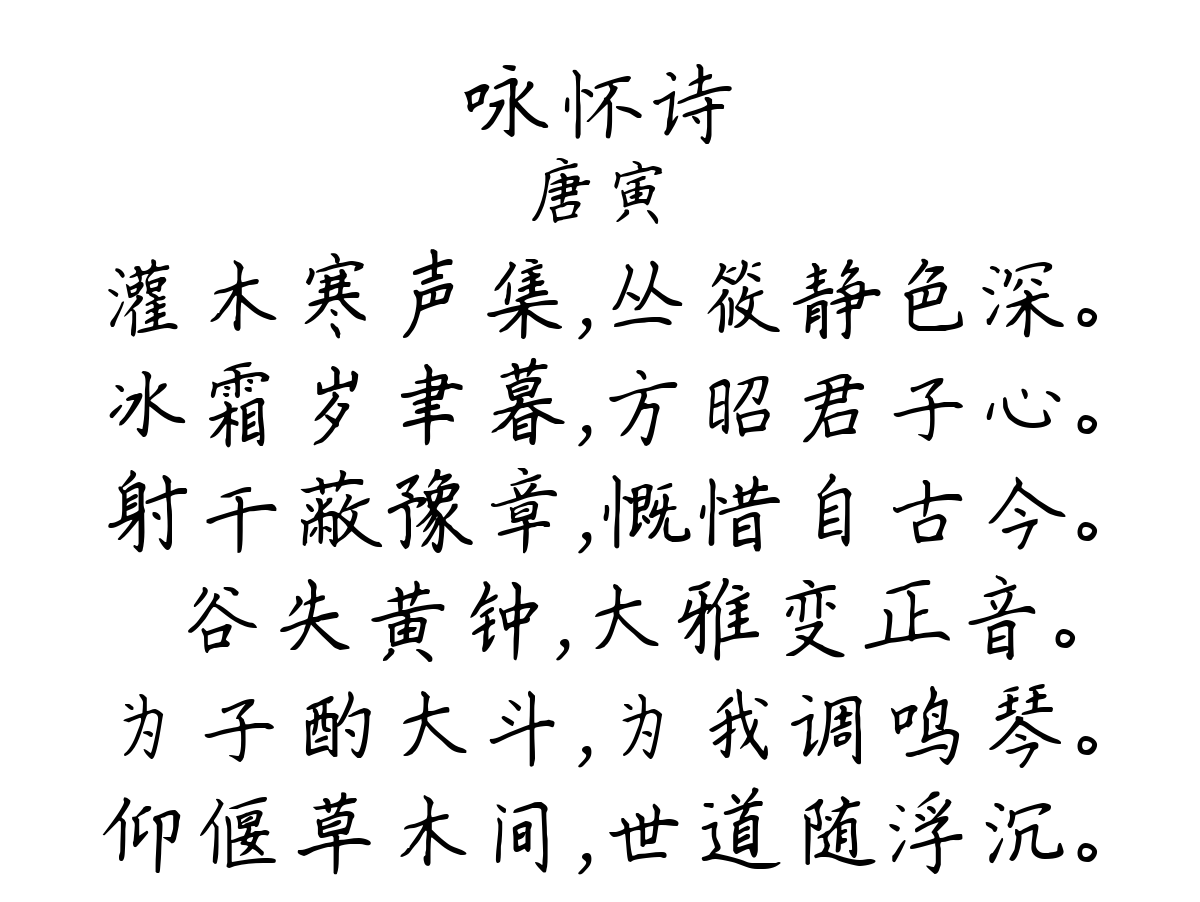 咏怀诗
唐寅
灌木寒声集,丛筱静色深。
冰霜岁聿暮,方昭君子心。
射干蔽豫章,慨惜自古今。
谷失黄钟,大雅变正音。
为子酌大斗,为我调鸣琴。
仰偃草木间,世道随浮沉。